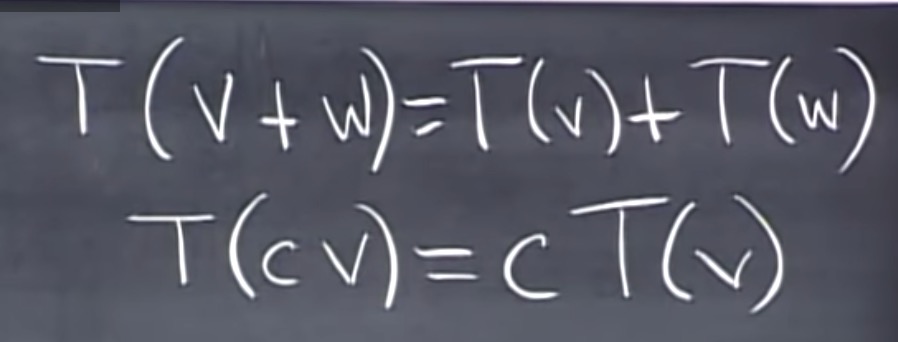 T(v+w)=T(v)+T(w)
T(cv)=cT(v)